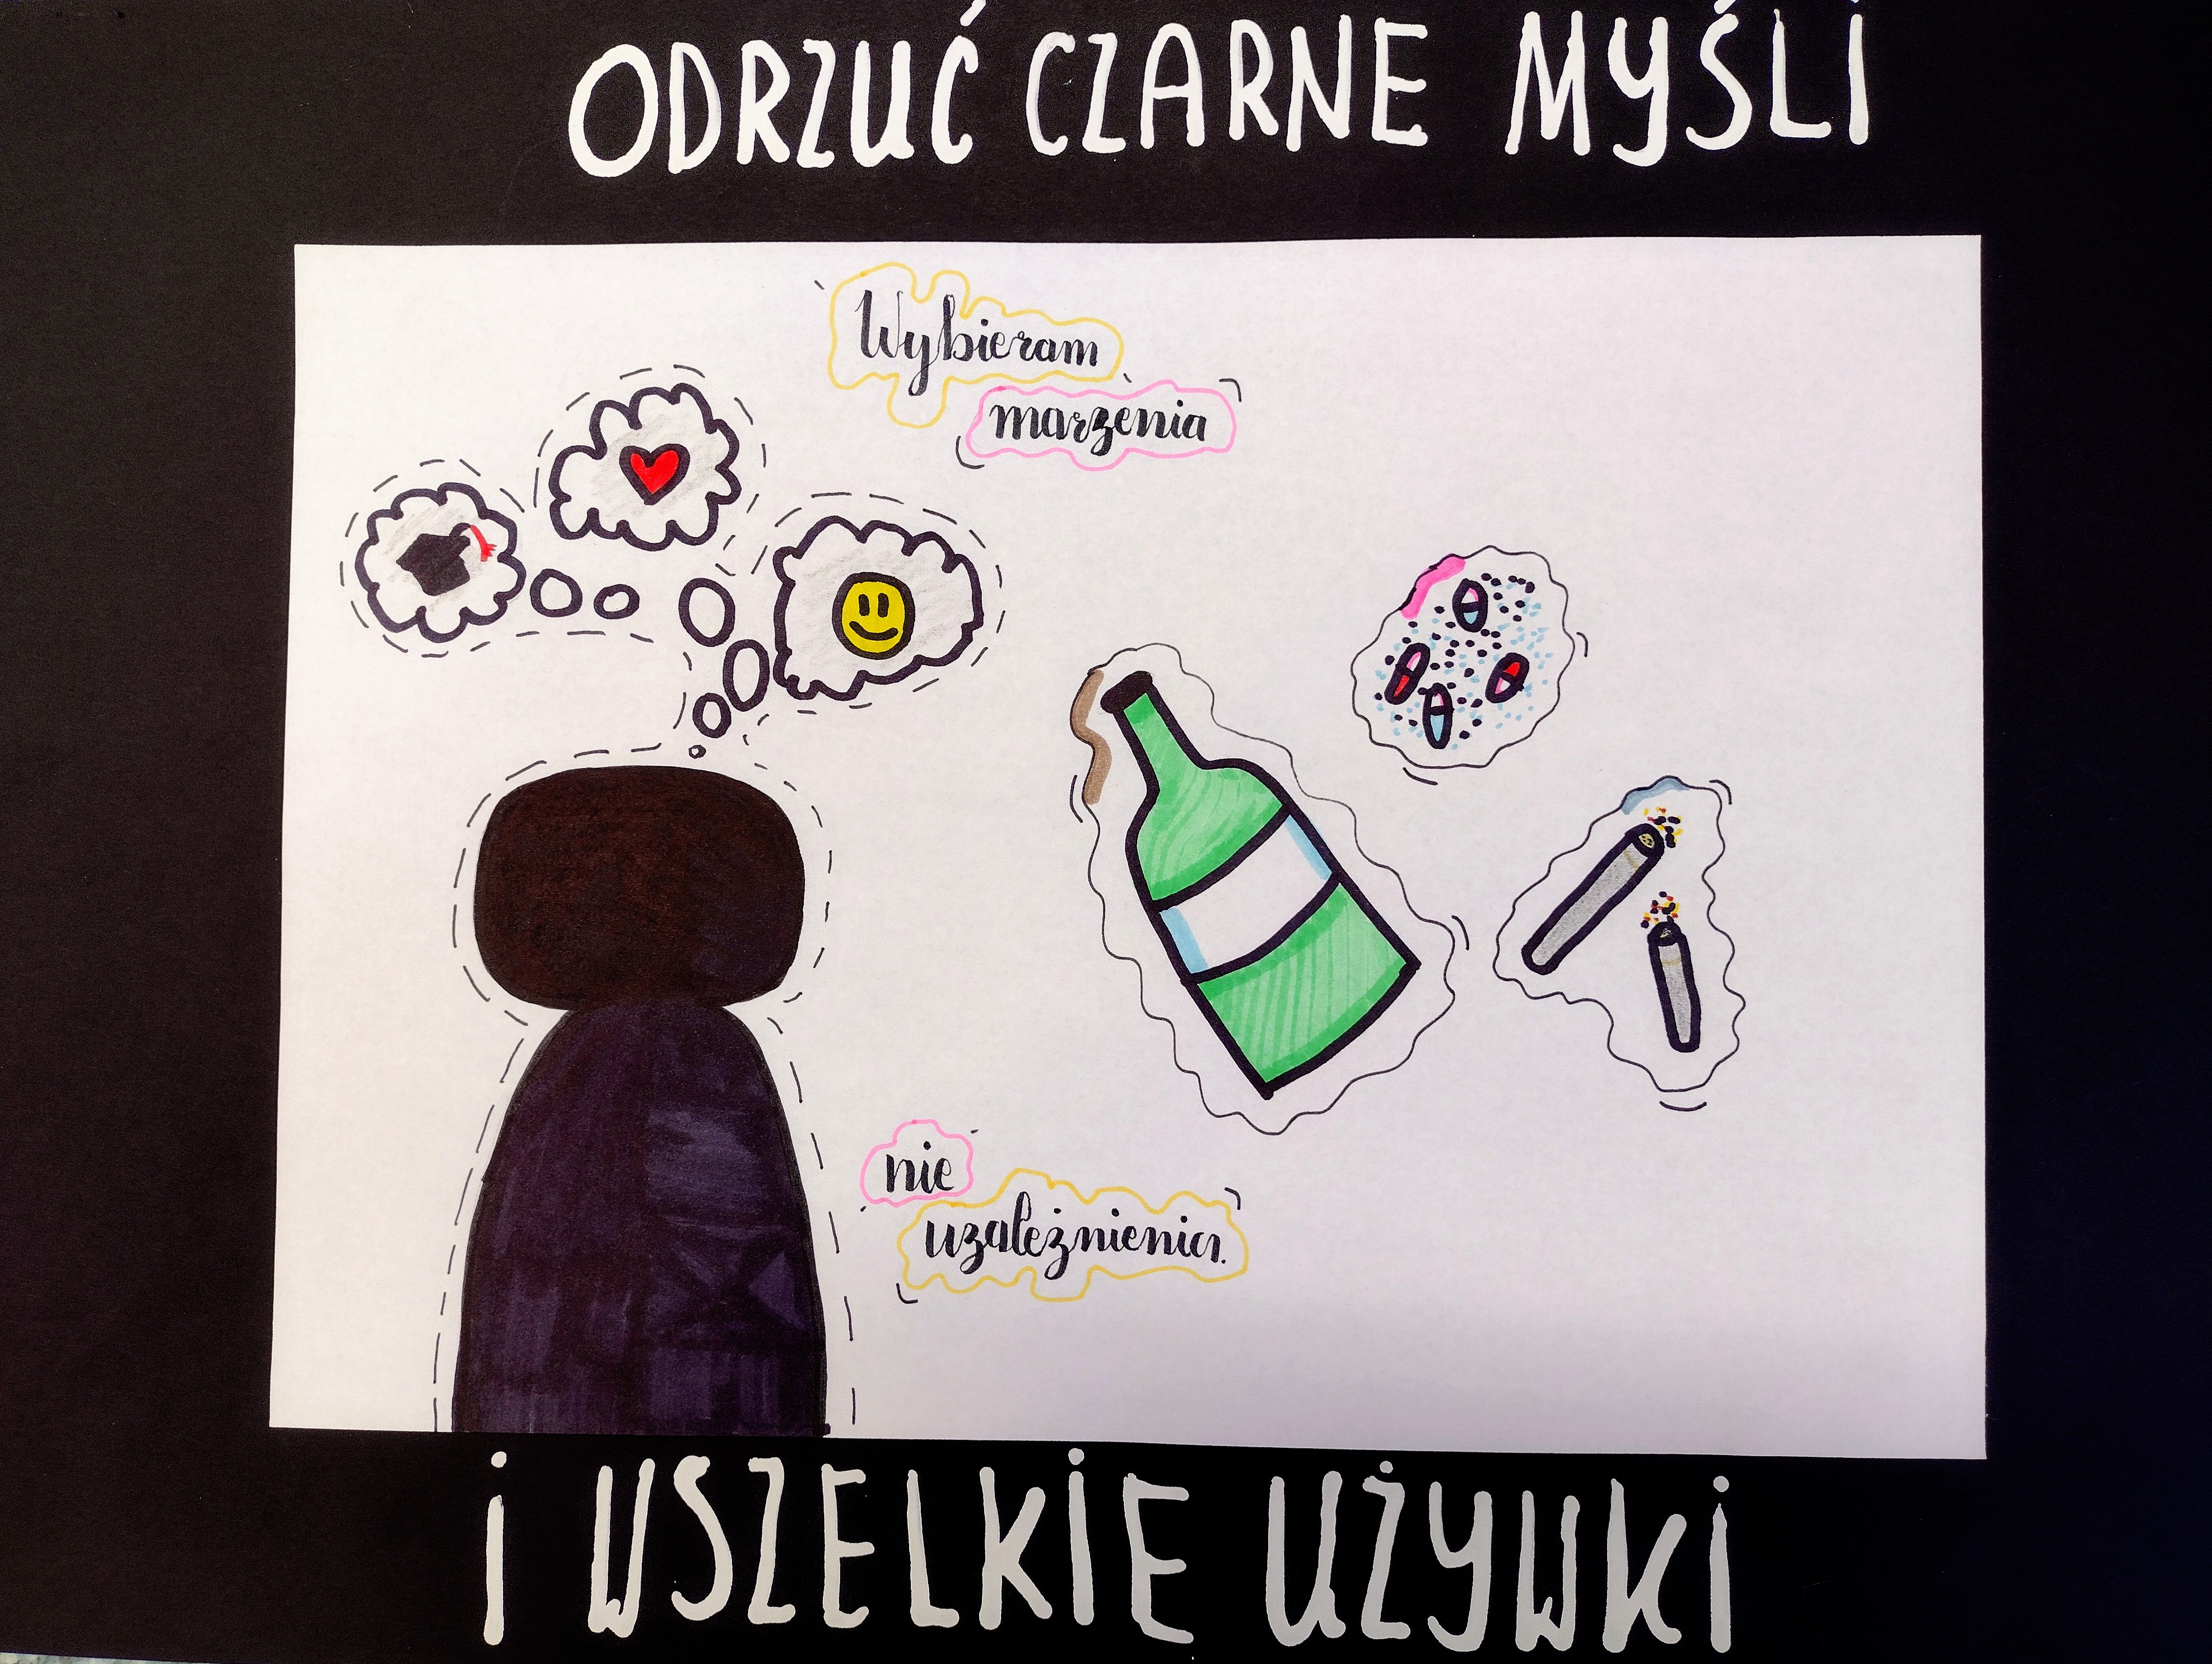 ODRZUĆ CZARNE MYŚLI
Wybieram
marzenia
nie
uzależnienia.
i WSZELKIE UŻYWKI